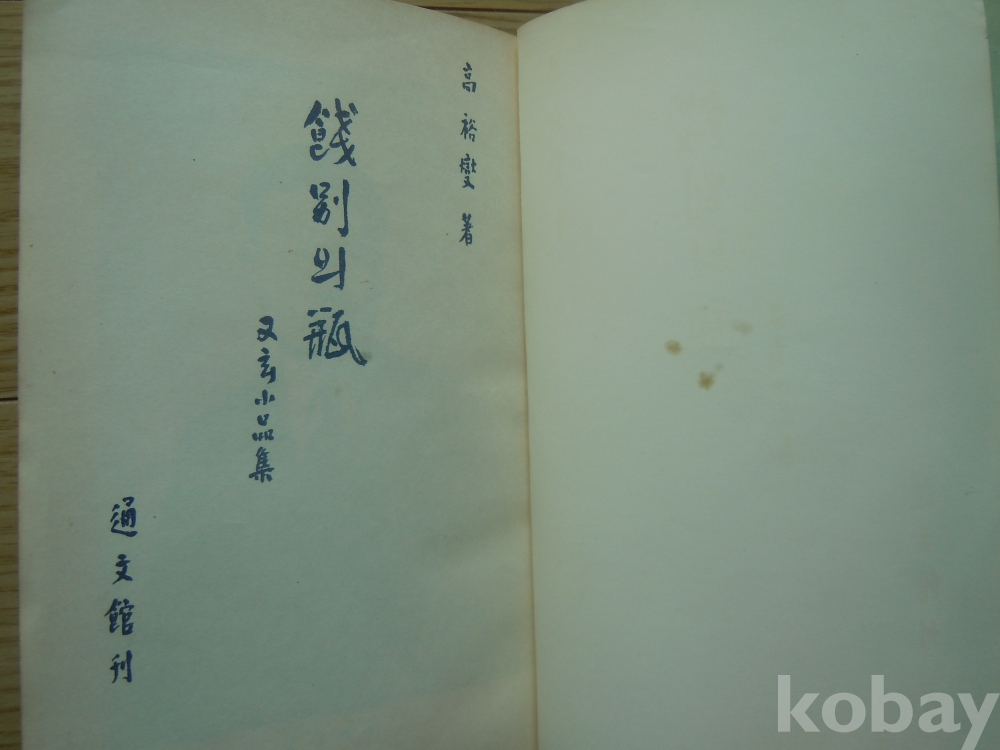 高裕燮 著
餞別의 瓶
又玄小品集
通文館刊
kobay